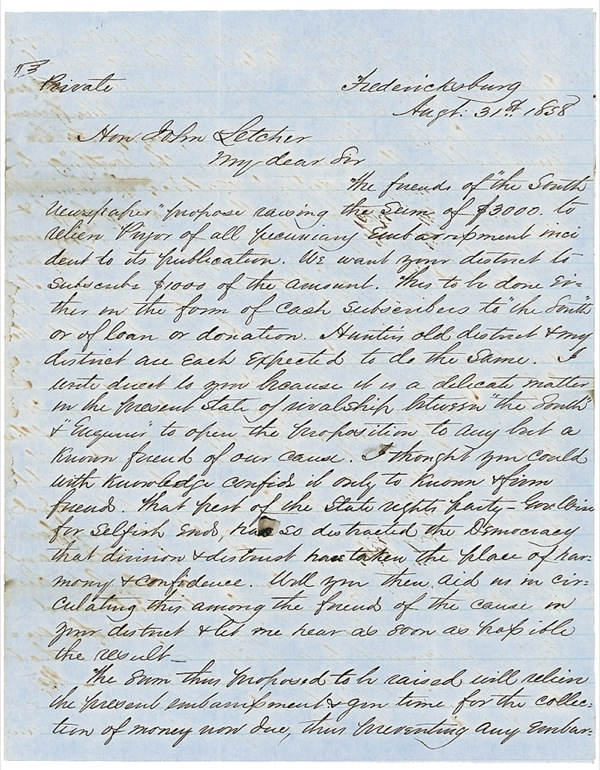 Private
Fredericksburg
Augt. 31st. 1858
Hon John Letcher
My dear Sir
The friends of "the South
Newspaper" propose raising the sum of $3000. to
relieve Pryor of all pecuniary embarrassment inci
dent to its publication. We want your district to
subscribe $1000 of the amount. This to be done ei=
ther in the form of cash subscribers to "the South"
or of loan or donation. Hunters old district & my
district are each expected to do the same. I
write direct to you because it is a delicate matter
in the present state of rivalship between "the South"
& "Enquirer" to open the proposition to any but a
known friend of our cause. I thought you could
with knowledge confide it only to known & firm
friends. That pest of the State rights party –
for selfish ends has so distracted the Democracy
that division & distrust has taken the place of har=
mony & confidence. Will you then aid us in cir=
culating this among the friends of the cause in
your district & let me hear as soon as possible
the result –
The sum thus proposed to be raised will relieve
the present embarrassment & give time for the collec=
tion of money now due, thus preventing any embar=